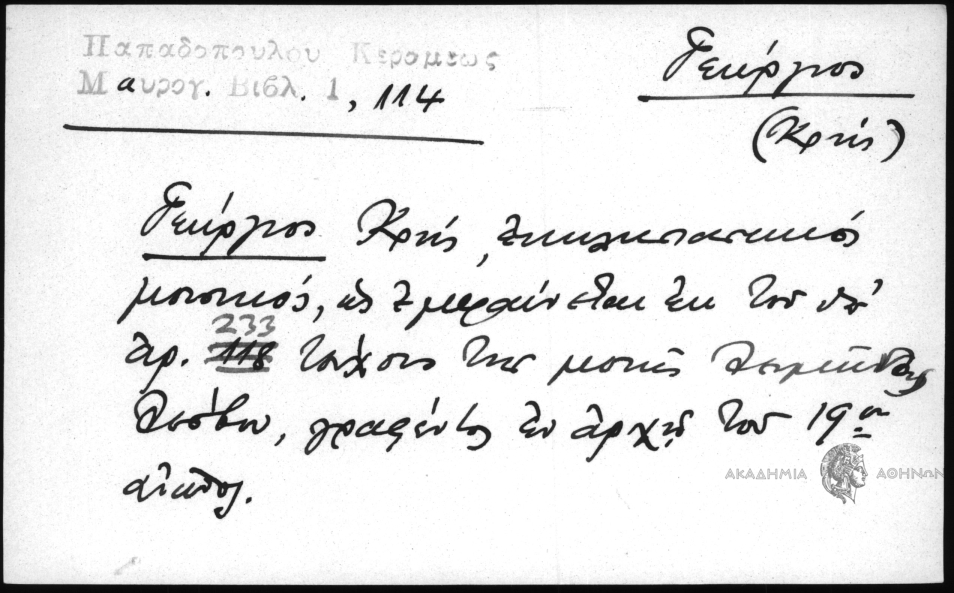 Παπαδοπούλου Κεραμέως
Μαυρογ. Βιβλ. 1, 114
Γεώργιος
(Κρής)
Γεώργιος Κρής, ἐκκλησιαστικός
μουσικός, ὡς ἐμφαίνεται ἐκ τοῦ ὑπ'
ἀρ. 233 τεύχους της μονῆς
Λέσβου, γραφέντος ἐν ἀρχῇ τοῦ 19ου
αἰῶνος.
ΑΚΑΔΗΜΙΑ ΑΘΗΝΩΝ